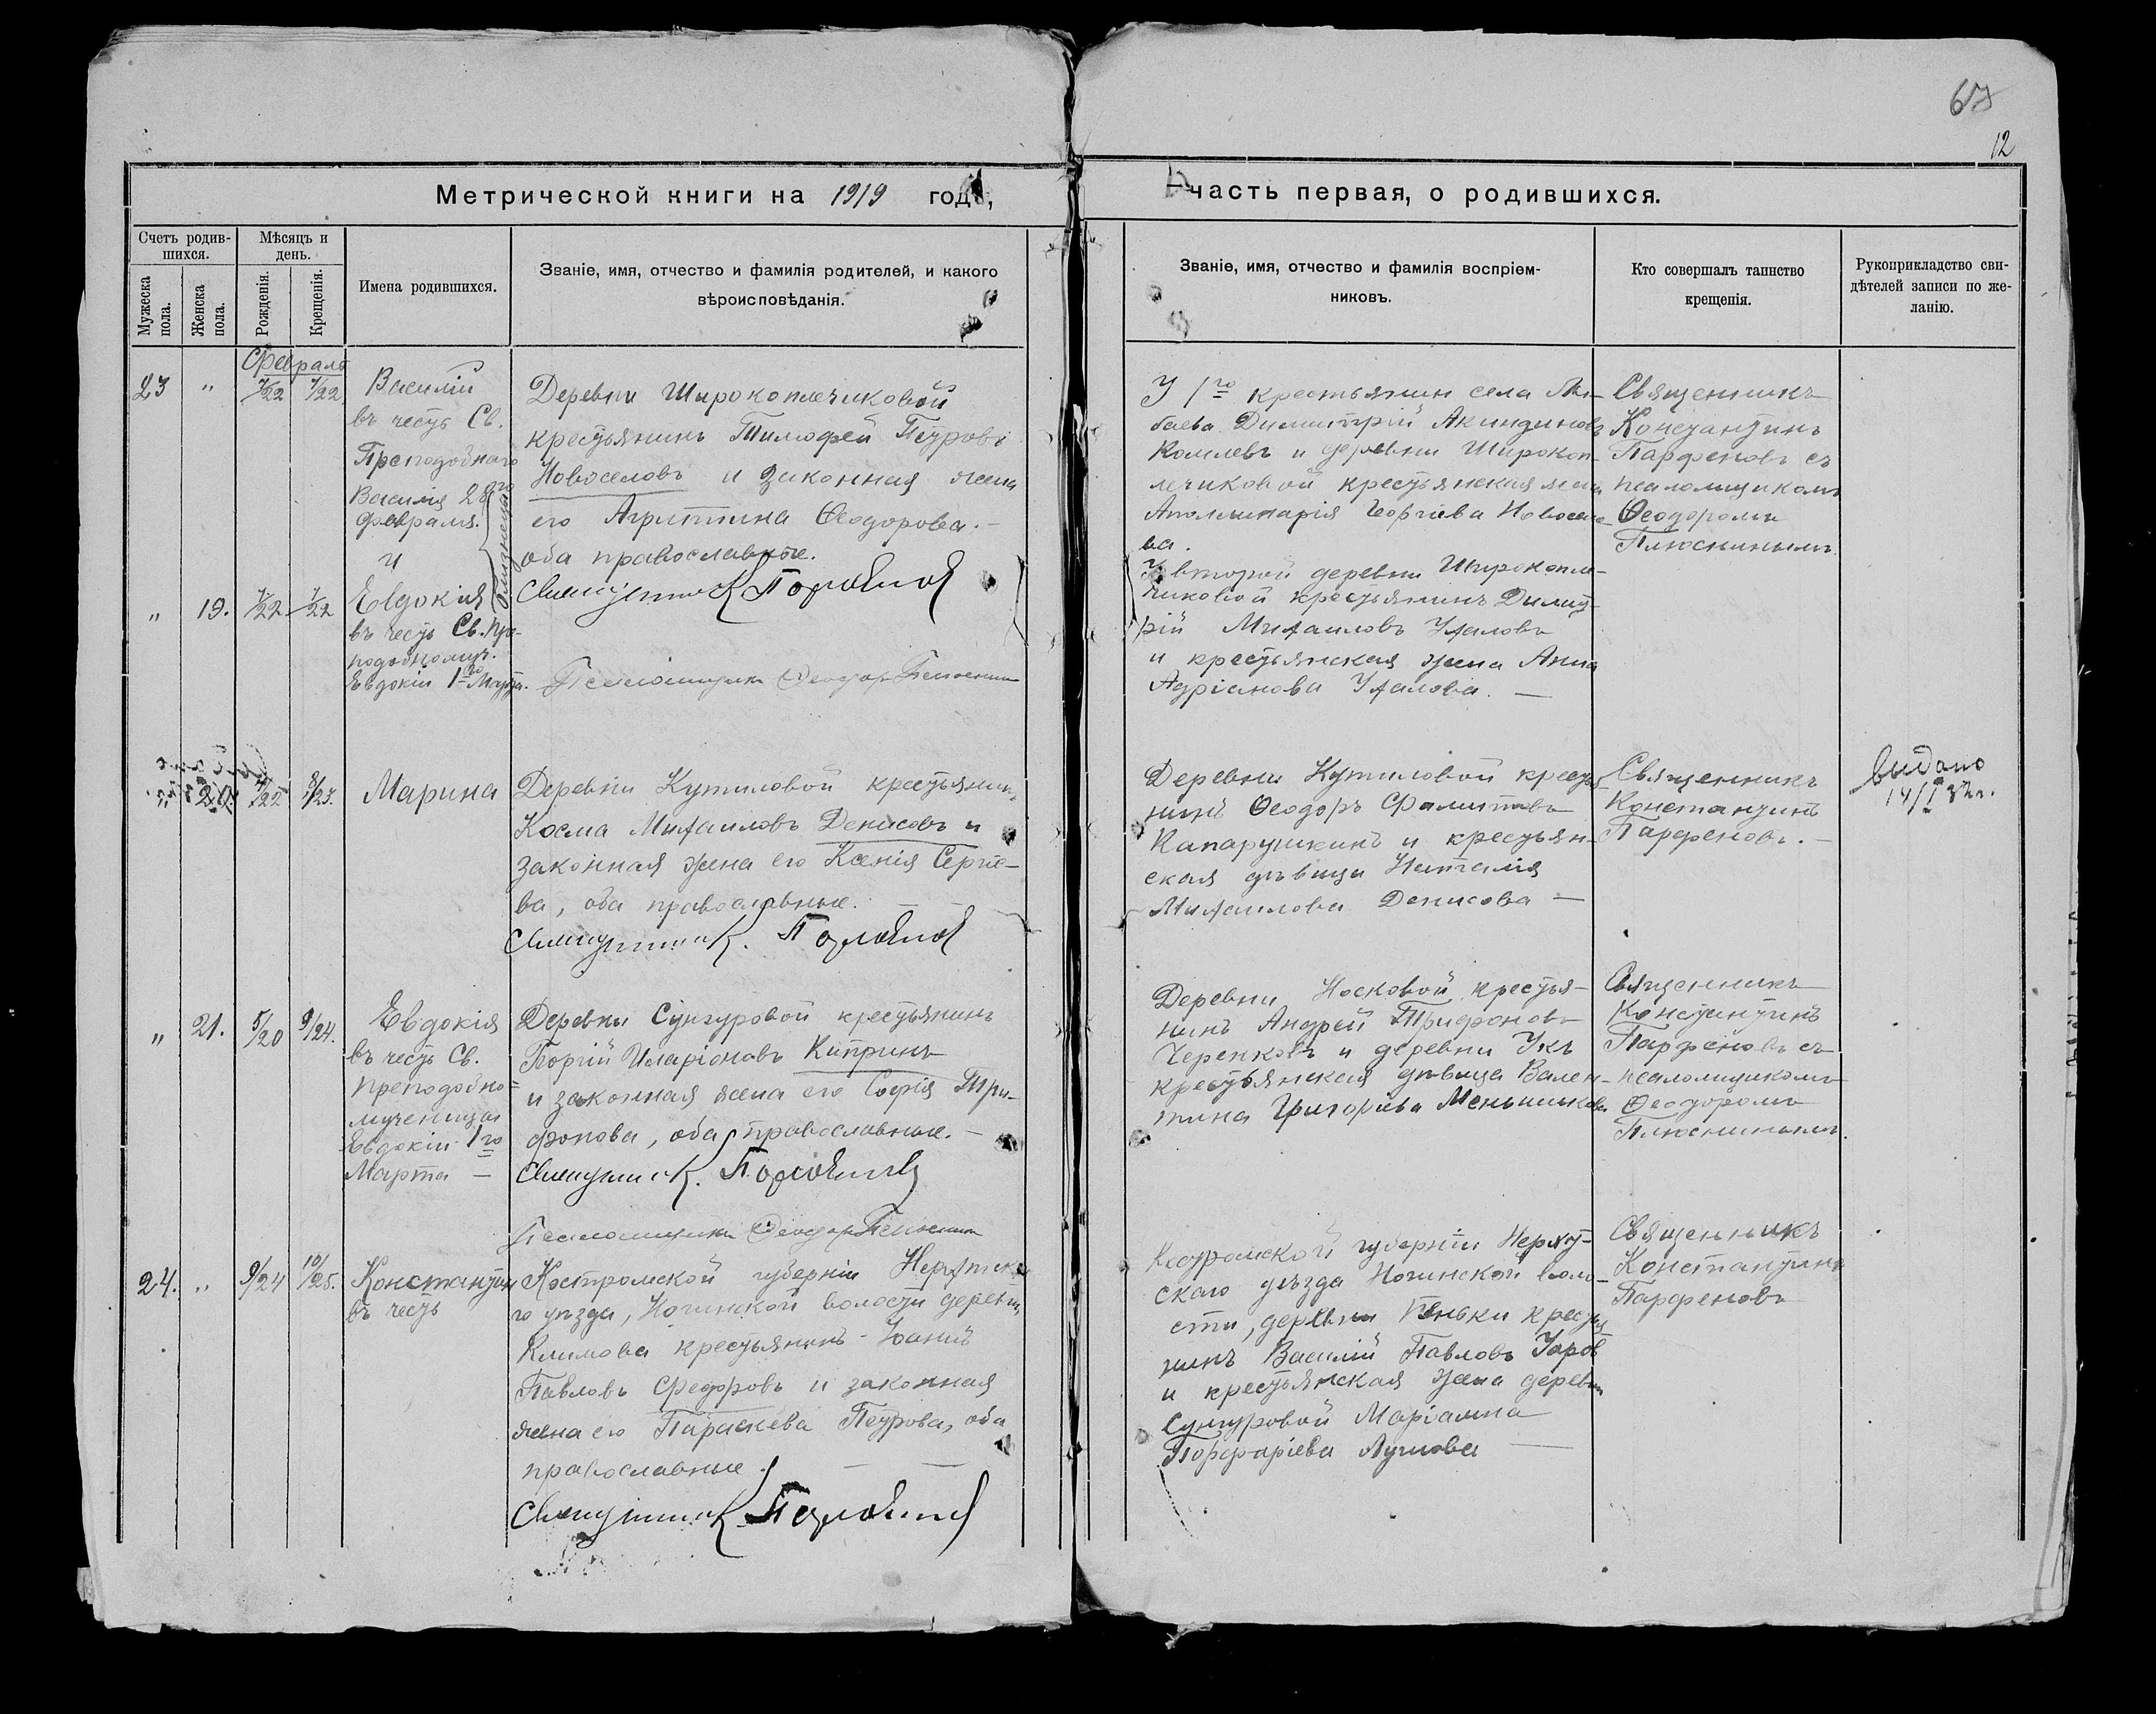 67
12
Метрической книги на 1919 годъ,
часть первая, о родившихся.
Счетъ родив-
шихся.
Мужеска
пола.
Женска
пола.
Мѣсяцъ и
день.
Рожденія.
Крещенія.
Имена родившихся.
Званіе, имя, отчество и фамилія родителей, и какого
вѣроисповѣданія.
Званіе, имя, отчество и фамилія воспріем-
никовъ.
Кто совершалъ таинство
крещенія.
Рукоприкладство сви-
дѣтелей записи по же-
ланію.
Февраль
23 " 7/22 7/22
Василій
въ честь Св.
Преподобнаго
Василія 28го
февраля.
и
" 19. 7/22 7/22
Евдокія
въ честь Св. Пре-
подобномуч.
Евдокіи 1го Марта.
близнецы
Деревни Широкоплечиковой
крестьянинъ Тимофей Петровъ
Новоселовъ и законная жена
его Агриппина Ѳеодорова. —
оба православные.
Священникъ К Парфенов
Псаломщикъ Ѳеодор Плюснин
У 1го крестьянин села
баева Димитрій Акиндиновъ
Комлевъ и деревни Широкоп-
лечиковой крестьянская жена
Аполлинарія Георгіева Новосело-
ва.
У второй деревни Широкопле-
чиковой крестьянинъ Димит-
рій Михаиловъ Ухаловъ
и крестьянская жена Анна
Адріанова Ухалова. —
Священникъ
Константинъ
Парфеновъ съ
псаломщикомъ
Ѳеодоромъ
Плюснинымъ
" 20. 4/22 8/23.
Марина
Деревни Кутиловой крестьянинъ
Косма Михаиловъ Денисовъ и
законная жена его Ксенія Сергіе-
ва, оба православные. — —
Священник К. Парфенов
Деревни Кутиловой кресть-
нинъ Ѳеодоръ Филипповъ
Капарушкинъ и крестьян-
ская дѣвица Наталія
Михаилова Денисова —
Священникъ
Константинъ
Парфеновъ. —
выдано
14/I 32 г.
" 21. 5/20 9/24.
Евдокія
въ честь Св.
преподобно-
мученицы
Евдокіи 1го
Марта —
Деревни Сунгуровой крестьянинъ
Георгій Иларіоновъ Кипринъ
и законная жена его Софія Три-
фонова, оба православные. —
Священник К. Парфенов
Псаломщикъ Ѳеодор Плюснин
Деревни Носковой крестья-
нинъ Андрей Трифоновъ
Черенковъ и деревни Укъ
крестьянская дѣвица Вален-
тина Григоріева Меньшикова
Священникъ
Константинъ
Парфеновъ съ
псаломщикомъ
Ѳеодоромъ
Плюснинымъ.
24. " 9/24 10/25.
Константин
въ честь
Костромской губерніи Нерехтска-
го уѣзда, Ногинской волости деревни
Климова крестьянинъ Іоаннъ
Павловъ Федоровъ и законная
жена его Параскева Петрова, оба
православные. — —
Священник К Парфенов
Костромской губерніи Нерехт-
скаго уѣзда Ногинской воло-
сти, деревни Пеньки крестья-
нинъ Василій Павловъ
и крестьянская жена деревни
Сунгуровой Маріамна
Порфиріева Лунова —
Священникъ
Константинъ
Парфеновъ